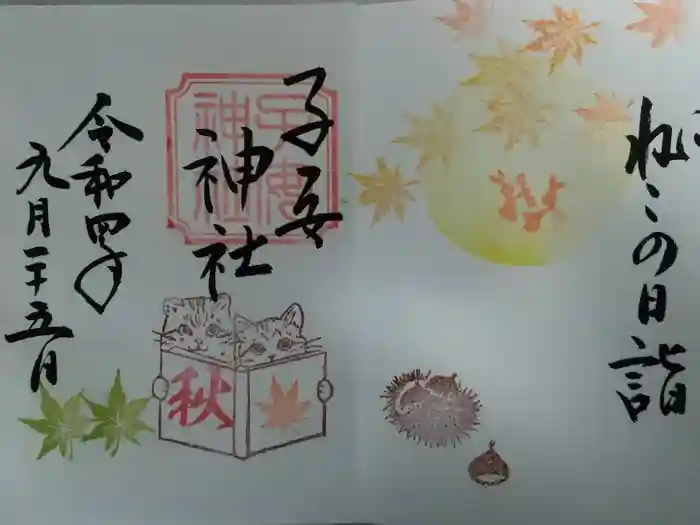 ねこの日詣
子安
神社
秋
令和四年
九月二十五日